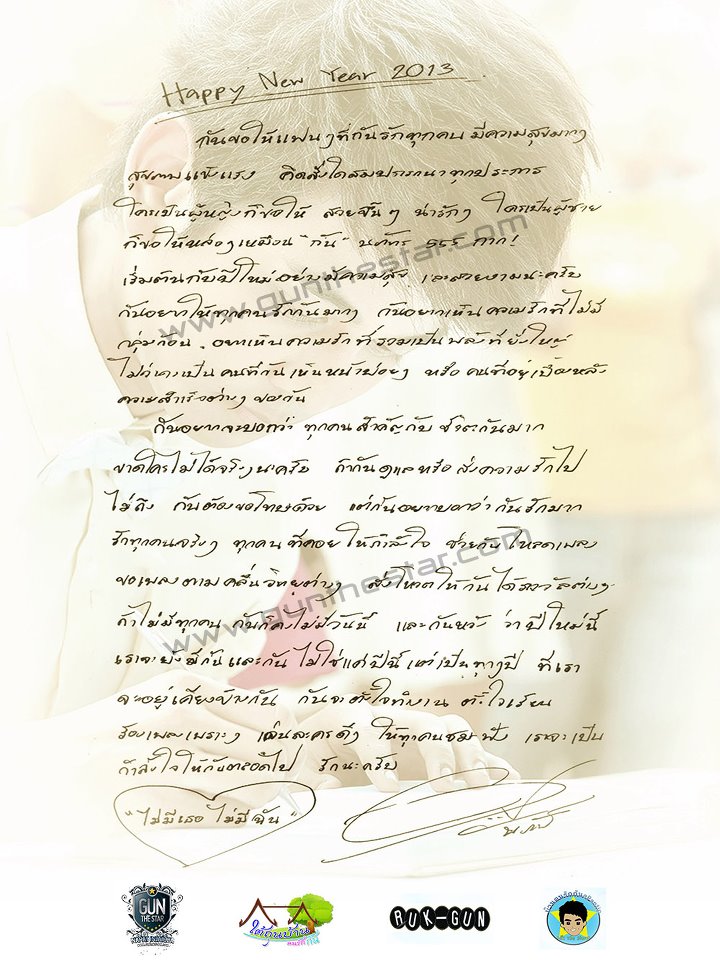 Happy New Year 2013
กันขอให้แฟนๆที่กันรักทุกคน มีความสุขมากๆ
สุขภาพแข็งแรง คิดสิ่งใดสมปรารถนาทุกประการ
ใครเป็นผู้หญิงก็ขอให้ สวยขึ้นๆ น่ารักๆ ใครเป็นผู้ชาย
ก็ขอให้หล่อๆเหมือน "กัน" นภัทร 555 ภาก!
เริ่มต้นกับปีใหม่อย่างมีความสุข และสวยงามนะครับ
กันอยากให้ทุกคนรักกันมากๆ กันอยากเห็นความรักที่ไม่มี
กลุ่มก้อน อยากเห็นความรักที่รวมเป็นพลังที่ยิ่งใหญ่
ไม่ว่าจะเป็นคนที่กันเห็นหน้าบ่อยๆ หรือคนที่อยู่เบื้องหลัง
ความสำเร็จต่างๆ ของกัน
กันอยากจะบอกว่า ทุกคนสำคัญกับชีวิตกันมาก
ขาดใครไม่ได้จริงๆนะครับ ถ้ากันดูแลหรือส่งความรักไป
ไม่ถึง กันต้องขอโทษด้วย แต่กันอยากบอกว่ากันรักมาก
รักทุกคนจริงๆ ทุกคนที่คอยให้กำลังใจ ช่วยกันโหลดเพลง
ขอเพลงตามคลื่นวิทยุต่างๆ ส่งโหวตให้กันได้รางวัลต่างๆ
ถ้าไม่มีทุกคน กันก็คงไม่มีวันนี้ และกันหวังว่าปีใหม่นี้
เราจะยังมีกันและกัน ไม่ใช่แค่ปีนี้ แต่เป็นทุกๆปี ที่เรา
จะอยู่เคียงข้างกัน กันจะตั้งใจทำงาน ตั้งใจเรียน
ร้องเพลงเพราะๆ เล่นละครดีๆ ให้ทุกคนชม ฟัง เราจะเป็น
กำลังใจให้กันตลอดไป รักนะครับ
"ไม่มีเธอ ไม่มีฉัน"
www.gunthestar.com
www.gunthestar.com
GUN THE STAR
ใต้ถุนบ้าน
RUK-GUN